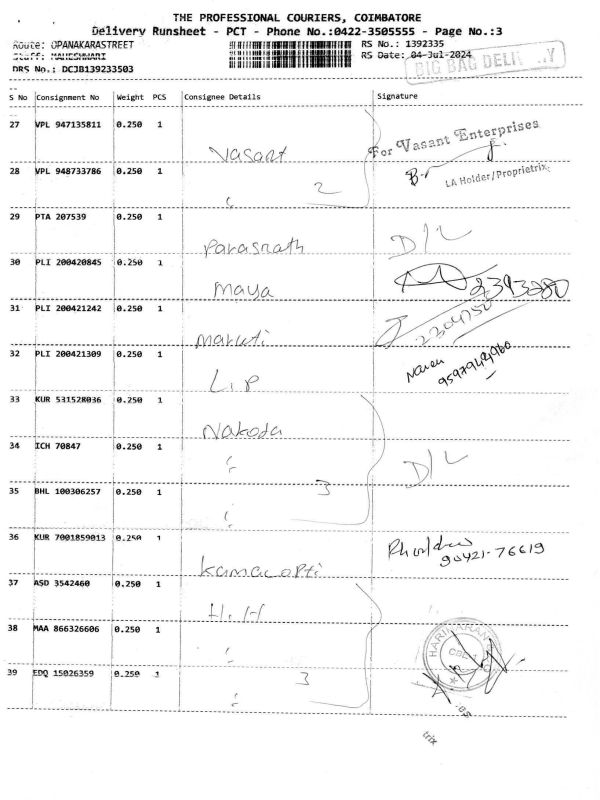 THE PROFESSIONAL COURIERS, COIMBATORE
Delivery Runsheet - PCT - Phone No.:0422-3505555 - Page No.:3
Route: OPANAKARASTREET RS No.: 1392335
Staff: MAHESHWARI RS Date: 04-Jul-2024
BIG BAG DELI Y
DRS No.: DCJB139233503
S No Consignment No Weight PCS Consignee Details Signature
27 VPL 947135811 0.250 1 Vasant For Vasant Enterprises
LA Holder/Proprietrix
28 VPL 948733786 0.250 1 " 2
29 PTA 207539 0.250 1 Parasnath D/L
30 PLI 200420845 0.250 1 Maya 2393280
31 PLI 200421242 0.250 1 Maruti 2304750
32 PLI 200421309 0.250 1 L.P Naren
33 KUR 531528036 0.250 1 Nakoda
34 ICH 70847 0.250 1 " D/L
35 BHL 100306257 0.250 1 " 3
36 KUR 7001859013 0.250 1 90421-76619
37 ASD 3542460 0.250 1 H.H
38 MAA 866326606 0.250 1 "
39 EDQ 15026359 0.250 1 " 3
es
trix